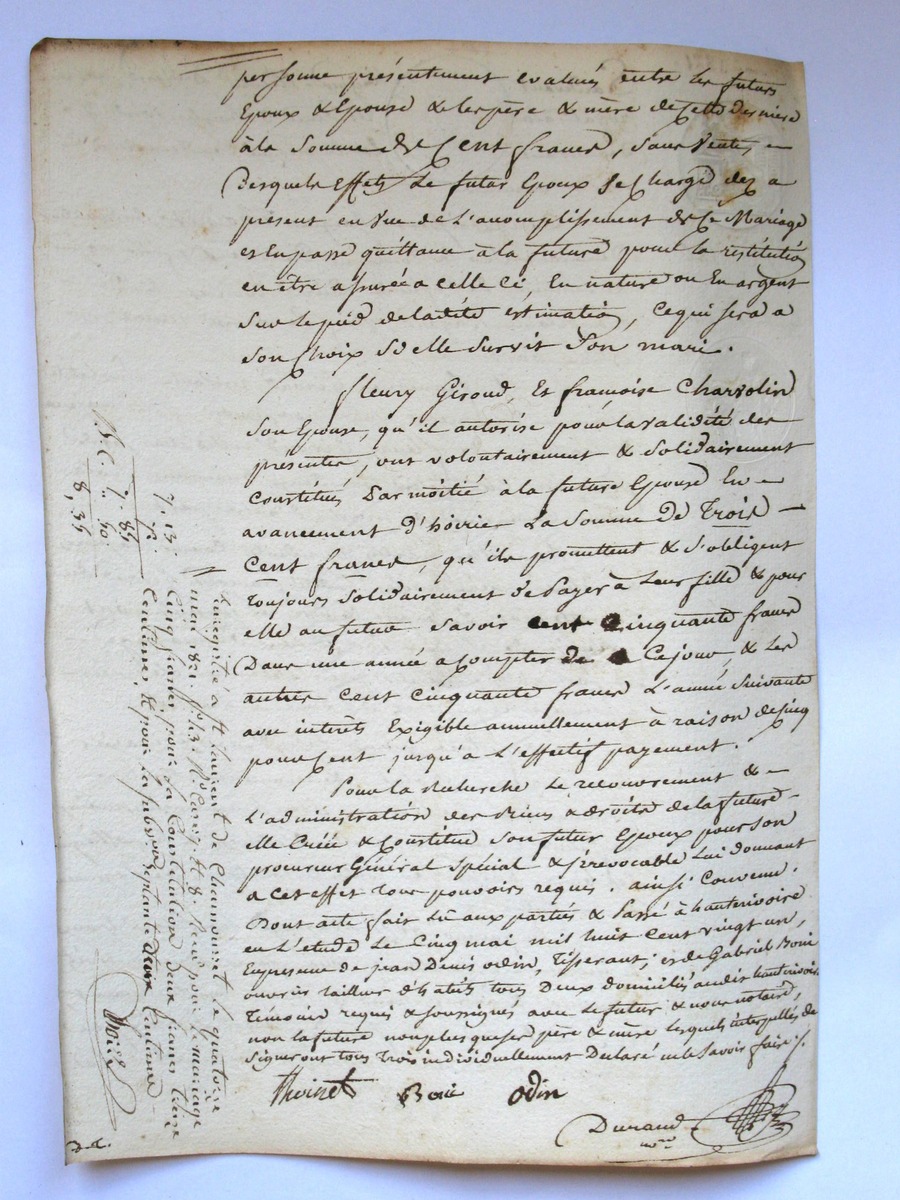 personne présentement evalués entre les futurs
Epoux & Epouse & les père & mère de cette dernière
à la somme de Cent francs, sans Vente,
Desquels Effets Le futur Epoux se charge dez a
présent en vue de L'accomplissement de ce Mariage
et en passe quittance à la future pour la restitution
en être assurée a celle ci, En nature ou En argent
sur le pied de ladite éstimation, ce qui sera a
son choix si elle survit son mari.
fleury Giroud, Et françoise Charvolin
son Epouse, qu'il autorise pour la validité des
presentes, ont volontairement & solidairement
Constitués par moitié à la future Epouse En
avancement d'hoirie La somme de Trois
Cent francs, qu'ils promettent & s'obligent
toujours solidairement de Payer à Leur fille & pour
elle au futur savoir cent Cinquante francs
Dans une année a compter de Ce jour, & Les
autres cent cinquante francs L'année suivante
avec intérêts Exigible annuellement à raison de cinq
pour cent jusqu'à L'effectif payement.
Pour la Recherche Le recouvrement &
L'administration des Biens & droits de la future
elle Créée & Constitue son futur Epoux pour son
procureur Général spécial & irrevocable Lui donnant
a cet effet Tous pouvoirs requis. ainsi Convenu.
Dont acte fait Lû aux parties & Passé à hauterivoire
en L'etude Le Cinq mai mil huit Cent vingt un,
En presence de jean Denis odin, Tisserant; et de Gabriel Boui
ouvrier tailleur d'habits tous Deux domiciliés audit hauterivoire
Témoins requis & soussignés avec Le futur & nous notaire,
non la future non plus que ses père & mère Lesquels interpellés de
signer ont tous Trois individuellement Declaré ne le savoir faire /.
Thoinet Boui odin
Durand
nre
Enregistré à St Laurent de Chamousset le quatorze
mai 1821 fo 13 Ro Cases et 8. Reçu pour le mariage
Cinq francs pour La Constitution deux francs treize
Centimes, & pour la subvon Septante Deux Centimes
7. 13
72
7. 85
50
8, 35